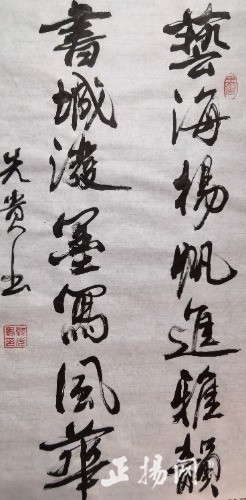 藝海楊帆進雅韻
書城潑墨寫風華
先貴书
正扬网